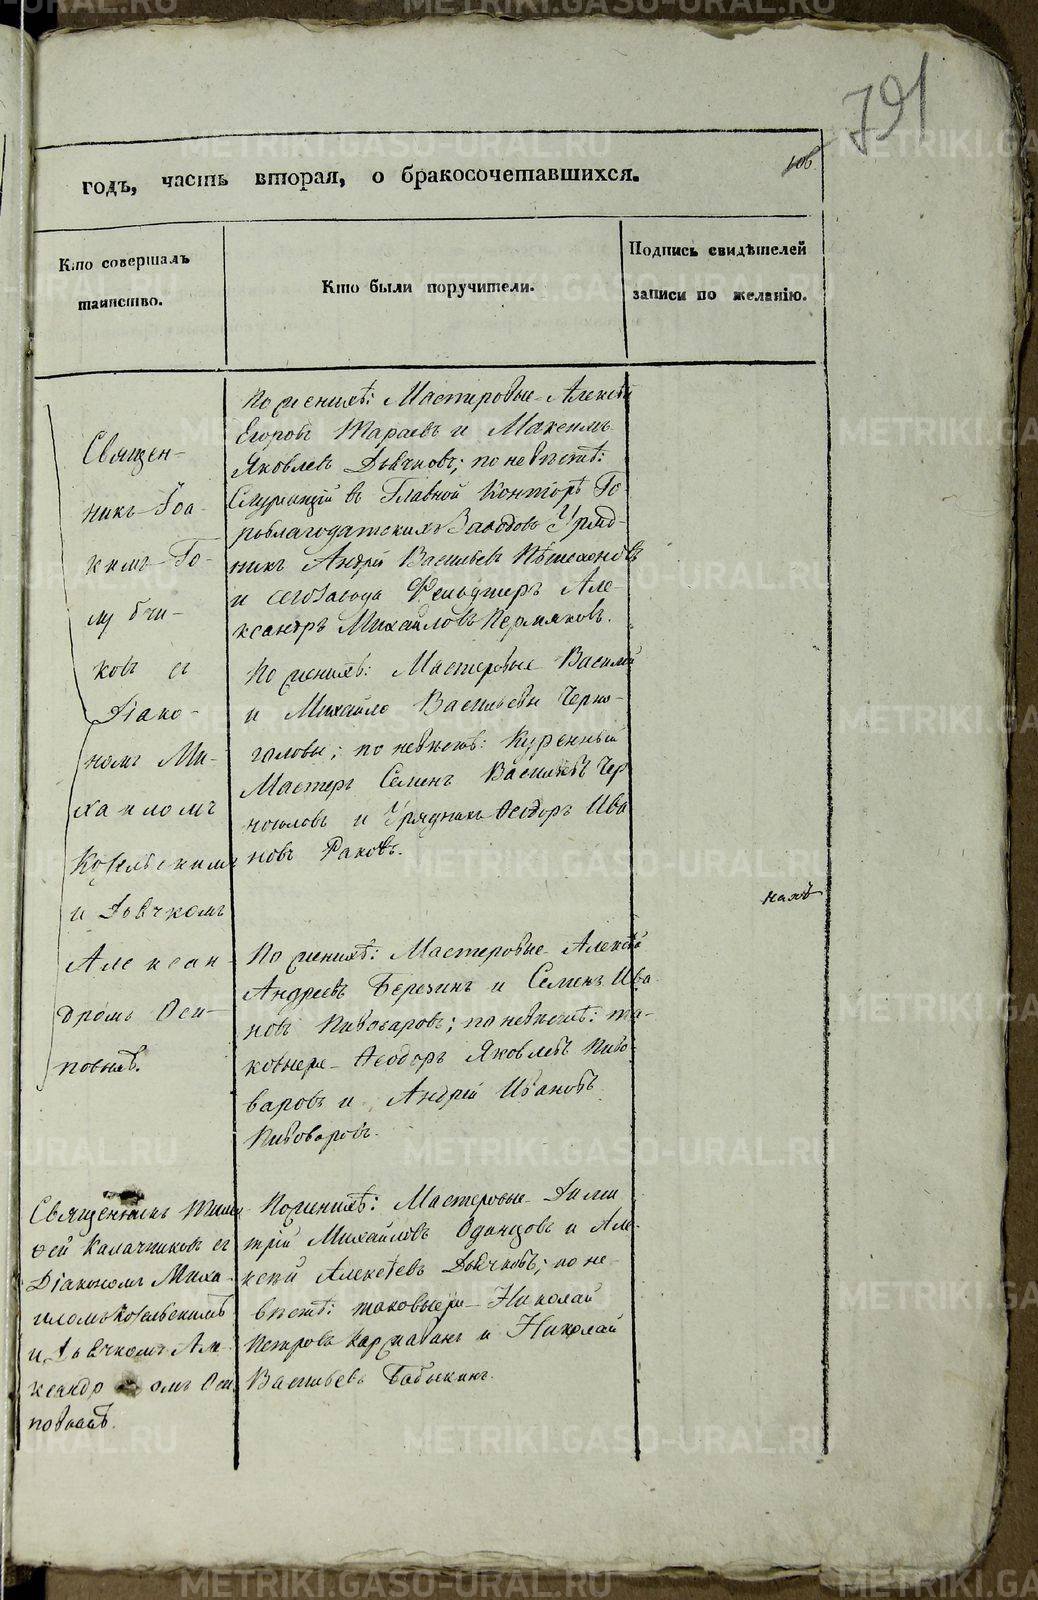 791
106
годъ, часть вторая, о бракосочетавшихся.
Кто совершалъ
таинство.
Кто были поручители.
Подпись свидѣтелей
записи по желанію.
Священ-
никъ Іоа-
кимъ Го-
лубчи-
ковъ съ
Діако-
номъ Ми-
хаиломъ
Козельскимъ
и Дьячкомъ
Алексан-
дромъ Оси-
повымъ.
По женихѣ: Мастеровые Алексѣй
Егоровъ Шараевъ и Максимъ
Яковлевъ Дьячковъ; по невѣстѣ:
Служащій въ Главной Конторѣ Го-
роблагодатскихъ Заводовъ Уряд-
никъ Андрей Васильевъ Пѣшехоновъ
и сего Завода Фельдшеръ Але-
ксандръ Михайловъ Пермяковъ.
По женихѣ: Мастеровые Василий
и Михайло Васильевы Черно-
головы; по невѣстѣ: Куренный
Мастеръ Семенъ Васильевъ Чер
ноголовъ и Урядникъ Ѳеодоръ Ива
новъ Раковъ.
По женихѣ: Мастеровые Алексѣй
Андреевъ Березинъ и Семенъ Ива
новъ Пивоваровъ; по невѣстѣ: та-
ковыеже Ѳеодоръ Яковлевъ Пиво-
варовъ и Андрей Ивановъ
Пивоваровъ.
Священникъ Тимо
ѳей Калачниковъ съ
Діакономъ Миха-
иломъ Козельскимъ
и Дьячкомъ Але-
ксандромъ Оси
повымъ.
По женихѣ: Мастеровые Дими
трій Михайловъ Одинцовъ и Але-
ксѣй Алексѣевъ Дьячковъ; по не-
вѣстѣ: таковыеже Николай
Петровъ и Николай
Васильевъ Бабыкинъ.
METRIKI.GASO-URAL.RU